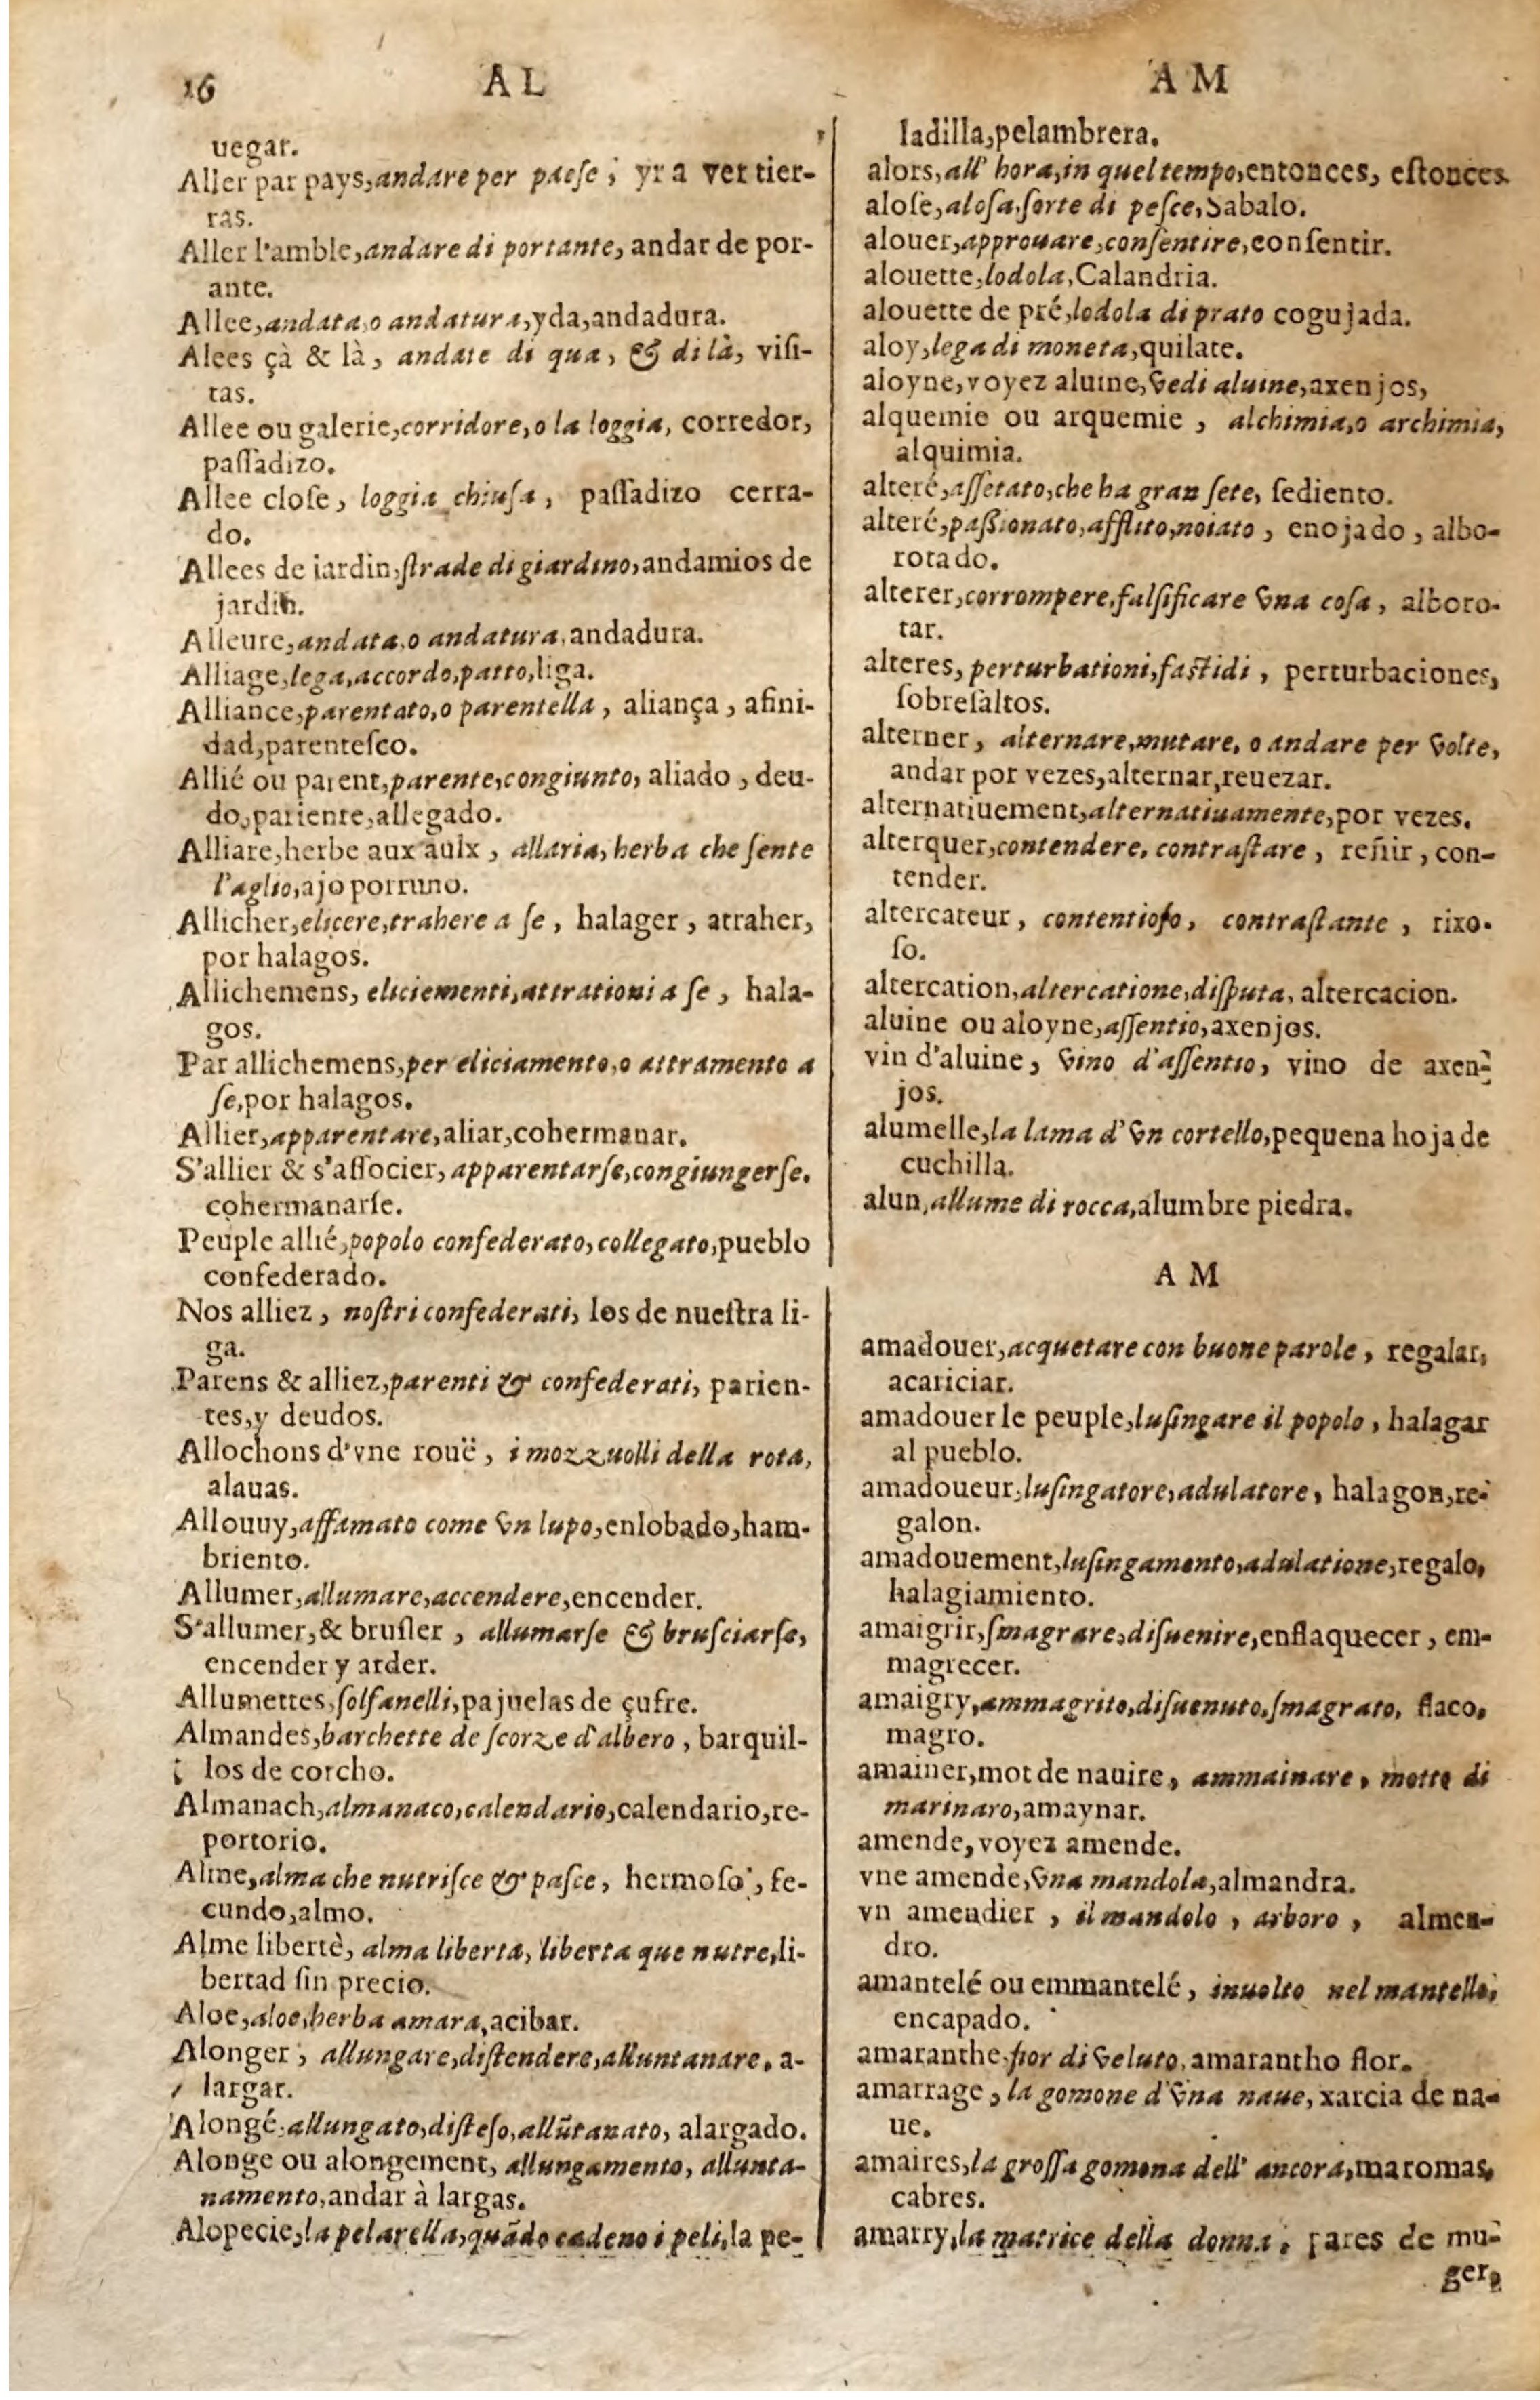 16
AL
AM
uegar.
Aller par pays, andare per paeſe, yr a ver tier-
ras.
Aller l'amble, andare di portante, andar de por-
ante.
Allee, andata, o andatura, yda, andadura.
Alees çà & là, andate di qua, & di là, viſi-
tas.
Allee ou galerie, corridore, o la loggia, corredor,
paſſadizo.
Allee cloſe, loggia chiuſa, paſſadizo cerra-
do.
Allees de iardin, ſtrade di giardino, andamios de
jardin.
Alleure, andata, o andatura, andadura.
Alliage, lega, accordo, patto, liga.
Alliance, parentato, o parentella, aliança, afini-
dad, parenteſco.
Allié ou parent, parente, congiunto, aliado, deu-
do, pariente, allegado.
Alliare, herbe aux aulx, allaria, herba che ſente
l'aglio, ajo porruno.
Allicher, elicere, trahere a ſe, halager, atraher,
por halagos.
Allichemens, eliciementi, attrationi a ſe, hala-
gos.
Par allichemens, per eliciamento, o attramento a
ſe, por halagos.
Allier, apparentare, aliar, cohermanar.
S'allier & s'aſſocier, apparentarſe, congiungerſe.
cohermanarſe.
Peuple allié, popolo confederato, collegato, pueblo
confederado.
Nos alliez, noſtri confederati, los de nueſtra li-
ga.
Parens & alliez, parenti & confederati, parien-
tes, y deudos.
Allochons d'vne rouë, i mozzuolli della rota,
alauas.
Allouuy, affamato come vn lupo, enlobado, ham-
briento.
Allumer, allumare, accendere, encender.
S'allumer, & bruſler, allumarſe & bruſciarſe,
encender y arder.
Allumettes, ſolfanelli, pajuelas de çufre.
Almandes, barchette de ſcorze d'albero, barquil-
los de corcho.
Almanach, almanaco, calendario, calendario, re-
portorio.
Alme, alma che nutriſce & paſce, hermoſo, fe-
cundo, almo.
Alme libertè, alma liberta, liberta que nutre, li-
bertad ſin precio.
Aloe, aloe, herba amara, acibar.
Alonger, allungare, diſtendere, alluntanare, a-
largar.
Alongé, allungato, diſteſo, allūtanato, alargado.
Alonge ou alongement, allungamento, allunta-
namento, andar à largas.
Alopecie, la pelarella, quādo cadeno i peli, la pe-
ladilla, pelambrera.
alors, all' hora, in quel tempo, entonces, eſtonces.
aloſe, aloſa, ſorte di peſce, Sabalo.
alouer, approuare, conſentire, conſentir.
alouette, lodola, Calandria.
alouette de pré, lodola di prato cogujada.
aloy, lega di moneta, quilate.
aloyne, voyez aluine, vedi aluine, axenjos,
alquemie ou arquemie, alchimia, o archimia,
alquimia.
alteré, aſſetato, che ha gran ſete, ſediento.
alteré, paſſionato, afflito, noiato, enojado, albo-
rotado.
alterer, corrompere, falſificare vna coſa, alboro-
tar.
alteres, perturbationi, faſtidi, perturbaciones,
ſobreſaltos.
alterner, alternare, mutare, o andare per volte,
andar por vezes, alternar, reuezar.
alternatiuement, alternatiuamente, por vezes.
alterquer, contendere, contraſtare, reñir, con-
tender.
altercateur, contentioſo, contraſtante, rixo-
ſo.
altercation, altercatione, diſputa, altercacion.
aluine ou aloyne, aſſentio, axenjos.
vin d'aluine, vino d'aſſentio, vino de axen-
jos.
alumelle, la lama d'vn cortello, pequena hoja de
cuchilla.
alun, allume di rocca, alumbre piedra.
AM
amadouer, acquetare con buone parole, regalar,
acariciar.
amadouer le peuple, luſingare il popolo, halagar
al pueblo.
amadoueur, luſingatore, adulatore, halagon, re-
galon.
amadouement, luſingamento, adulatione, regalo,
halagiamiento.
amaigrir, ſmagrare, diſuenire, enflaquecer, em-
magrecer.
amaigry, ammagrito, diſuenuto, ſmagrato, flaco,
magro.
amainer, mot de nauire, ammainare, motto di
marinaro, amaynar.
amende, voyez amende.
vne amende, vna mandola, almandra.
vn amendier, il mandolo, arboro, almen-
dro.
amantelé ou emmantelé, inuolto nel mantello,
encapado.
amaranthe, fior di veluto, amarantho flor.
amarrage, la gomone d'vna naue, xarcia de na-
ue.
amaires, la groſſa gomona dell' ancora, maromas,
cabres.
amarry, la matrice della donna, pares de mu-
ger,